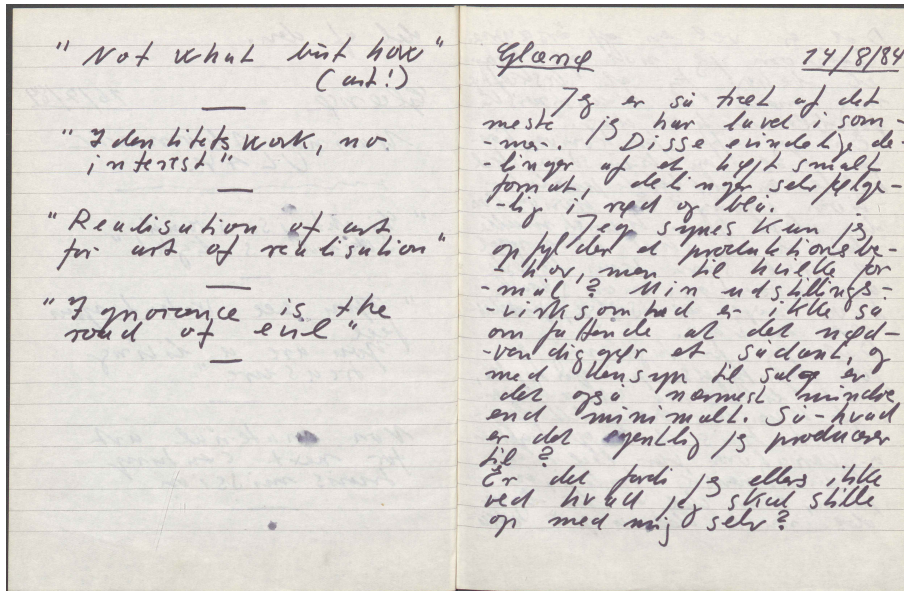 "Not what but how"
(art!)
"Identitets work, no
interest"
"Realisation of art
for art of realisation"
"Ignorance is the
road of evil"
Glænø 14/8/84
Jeg er så træt af det
meste jeg har lavet i som-
-mer. Disse evindelige de-
-linger af et højst smalt
format, delinger selvfølge-
-lig i rød og blå.
Jeg synes kun jeg
opfylder et produktionsbe-
-hov, men til hvilke for-
-mål? Min udstillings-
-virksomhed er ikke så
omfattende at det nød-
-vendiggør et sådant, og
med hensyn til salg er
det også nærmest mindre
end minimalt. Så-hvad
er det egentlig jeg producerer
til?
Er det fordi jeg ellers ikke
ved hvad jeg skal stille
op med mig selv?